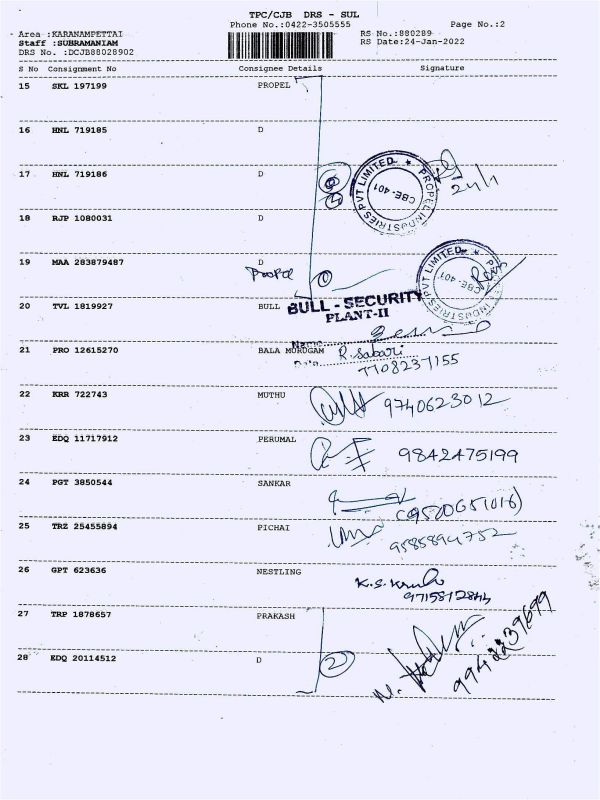 TPC/CJB DRS - SUL
Phone No.:0422-3505555
Page No.:2
Area :KARANAMPETTAI
RS No.:880289
Staff :SUBRAMANIAM
RS Date:24-Jan-2022
DRS No. :DCJB88028902
S No Consignment No Consignee Details Signature
15 SKL 197199 PROPEL
16 HNL 719185 D
17 HNL 719186 D
PROPEL INDUSTRIES PVT LIMITED ★
CBE-401
24/1
18 RJP 1080031 D
19 MAA 283879487 D
Propel
PROPEL INDUSTRIES PVT LIMITED ★
CBE-401
20 TVL 1819927 BULL
BULL - SECURITY
PLANT-II
Name
21 PRO 12615270 BALA MURUGAM R. Sabari
7708237155
22 KRR 722743 MUTHU 9740623012
23 EDQ 11717912 PERUMAL 9842475199
24 PGT 3850544 SANKAR
(9500651016)
25 TRZ 25455894 PICHAI
9585894752
26 GPT 623636 NESTLING
9715812844
27 TRP 1878657 PRAKASH
28 EDQ 20114512 D 2
9942239699